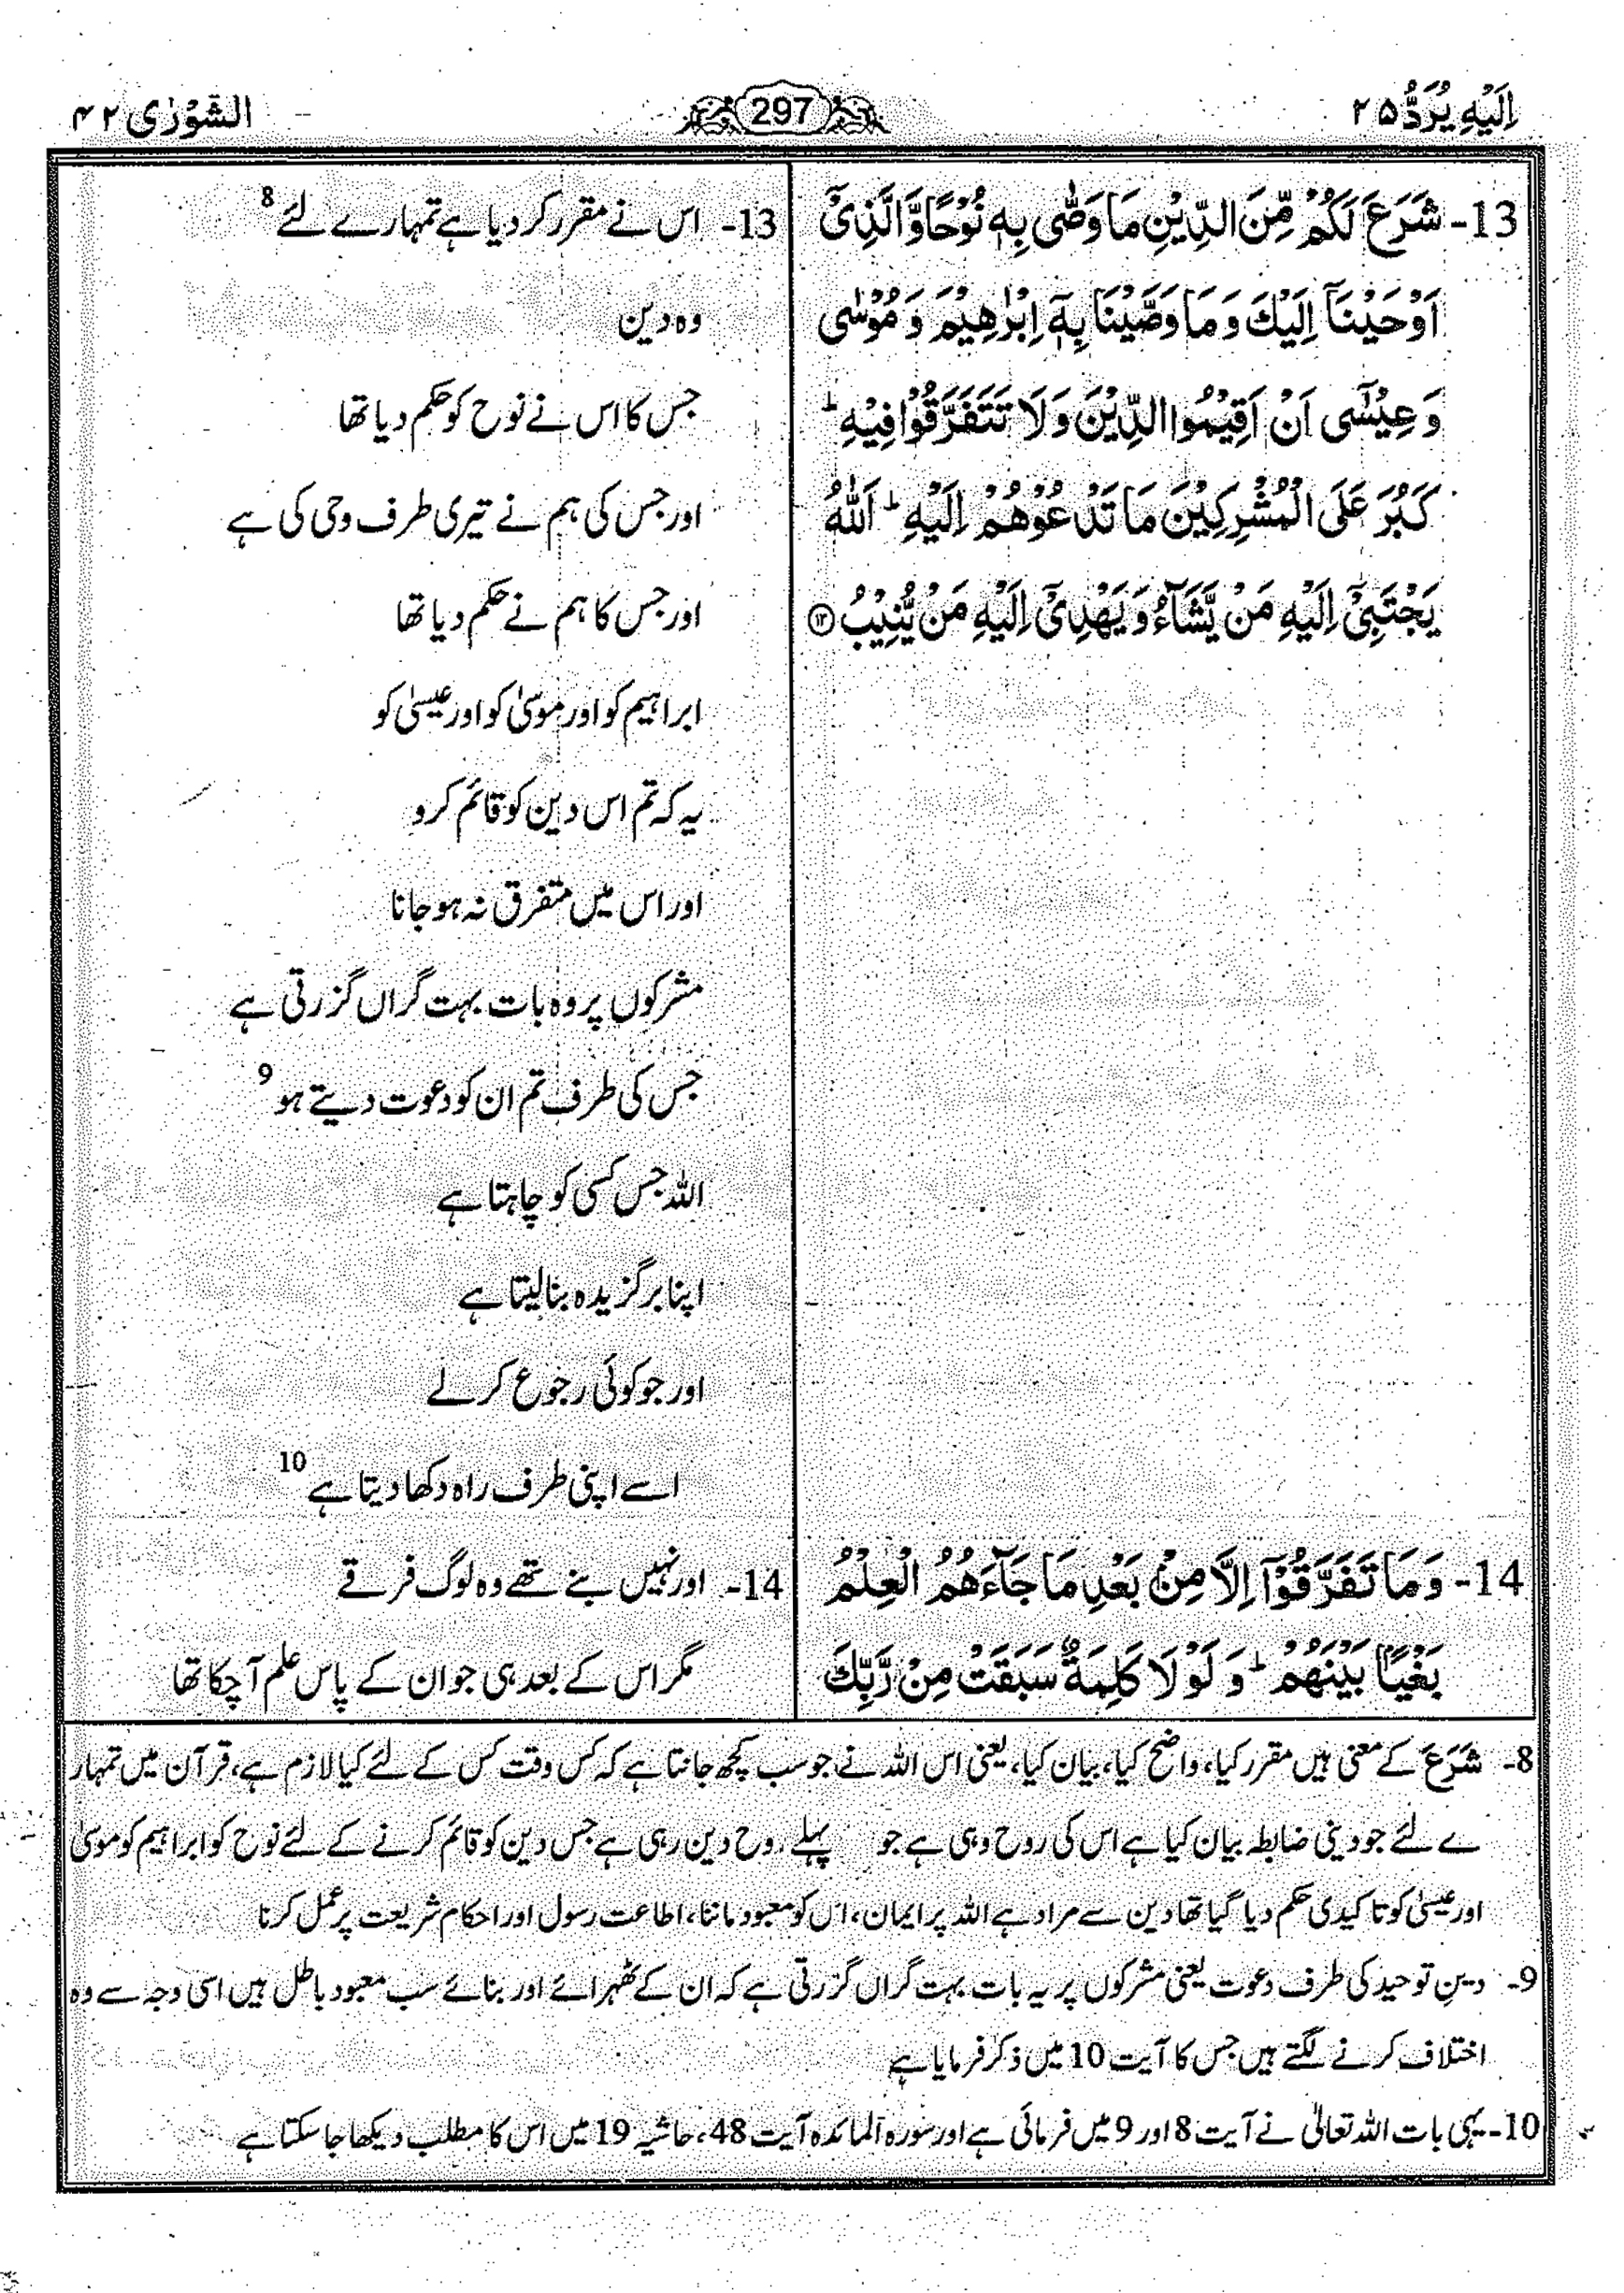 اِلَيْهِ يُرَدُّ ٢٥
297
الشُّوْرٰى ٤٢
13- شَرَعَ لَكُمْ مِّنَ الدِّيْنِ مَا وَصّٰى بِهٖ نُوْحًا وَّالَّذِىْٓ
اَوْحَيْنَآ اِلَيْكَ وَ مَا وَصَّيْنَا بِهٖٓ اِبْرٰهِيْمَ وَ مُوْسٰى
وَ عِيْسٰٓى اَنْ اَقِيْمُوا الدِّيْنَ وَ لَا تَتَفَرَّقُوْا فِيْهِ ؕ
كَبُرَ عَلَى الْمُشْرِكِيْنَ مَا تَدْعُوْهُمْ اِلَيْهِ ؕ اَللّٰهُ
يَجْتَبِىْٓ اِلَيْهِ مَنْ يَّشَآءُ وَ يَهْدِىْٓ اِلَيْهِ مَنْ يُّنِيْبُ ۝۱۳
13- اس نے مقرر کر دیا ہے تمہارے لئے 8
وہ دین
جس کا اس نے نوح کو حکم دیا تھا
اور جس کی ہم نے تیری طرف وحی کی ہے
اور جس کا ہم نے حکم دیا تھا
ابراہیم کو اور موسیٰ کو اور عیسیٰ کو
یہ کہ تم اس دین کو قائم کرو
اور اس میں متفرق نہ ہو جانا
مشرکوں پر وہ بات بہت گراں گزرتی ہے
جس کی طرف تم ان کو دعوت دیتے ہو 9
اللہ جس کسی کو چاہتا ہے
اپنا برگزیدہ بنا لیتا ہے
اور جو کوئی رجوع کر لے
اسے اپنی طرف راہ دکھا دیتا ہے 10
14- وَ مَا تَفَرَّقُوْٓا اِلَّا مِنْۢ بَعْدِ مَا جَآءَهُمُ الْعِلْمُ
بَغْيًۢا بَيْنَهُمْ ؕ وَ لَوْلَا كَلِمَةٌ سَبَقَتْ مِنْ رَّبِّكَ
14- اور نہیں بنے تھے وہ لوگ فرقے
مگر اس کے بعد ہی جو ان کے پاس علم آ چکا تھا
8- شَرَعَ کے معنی ہیں مقرر کیا، واضح کیا، بیان کیا، یعنی اس اللہ نے جو سب کچھ جانتا ہے کہ کس وقت کس کے لئے کیا لازم ہے، قرآن میں تمہار
ے لئے جو دینی ضابطہ بیان کیا ہے اس کی روح وہی ہے جو پہلے روح دین رہی ہے جس دین کو قائم کرنے کے لئے نوح کو ابراہیم کو موسیٰ
اور عیسیٰ کو تاکیدی حکم دیا گیا تھا دین سے مراد ہے اللہ پر ایمان، اس کو معبود ماننا، اطاعت رسول اور احکام شریعت پر عمل کرنا
9- دینِ توحید کی طرف دعوت یعنی مشرکوں پر یہ بات بہت گراں گزرتی ہے کہ ان کے ٹھہرائے اور بنائے سب معبود باطل ہیں اسی وجہ سے وہ
اختلاف کرنے لگتے ہیں جس کا آیت 10 میں ذکر فرمایا ہے
10- یہی بات اللہ تعالیٰ نے آیت 8 اور 9 میں فرمائی ہے اور سورہ المائدہ آیت 48، حاشیہ 19 میں اس کا مطلب دیکھا جا سکتا ہے